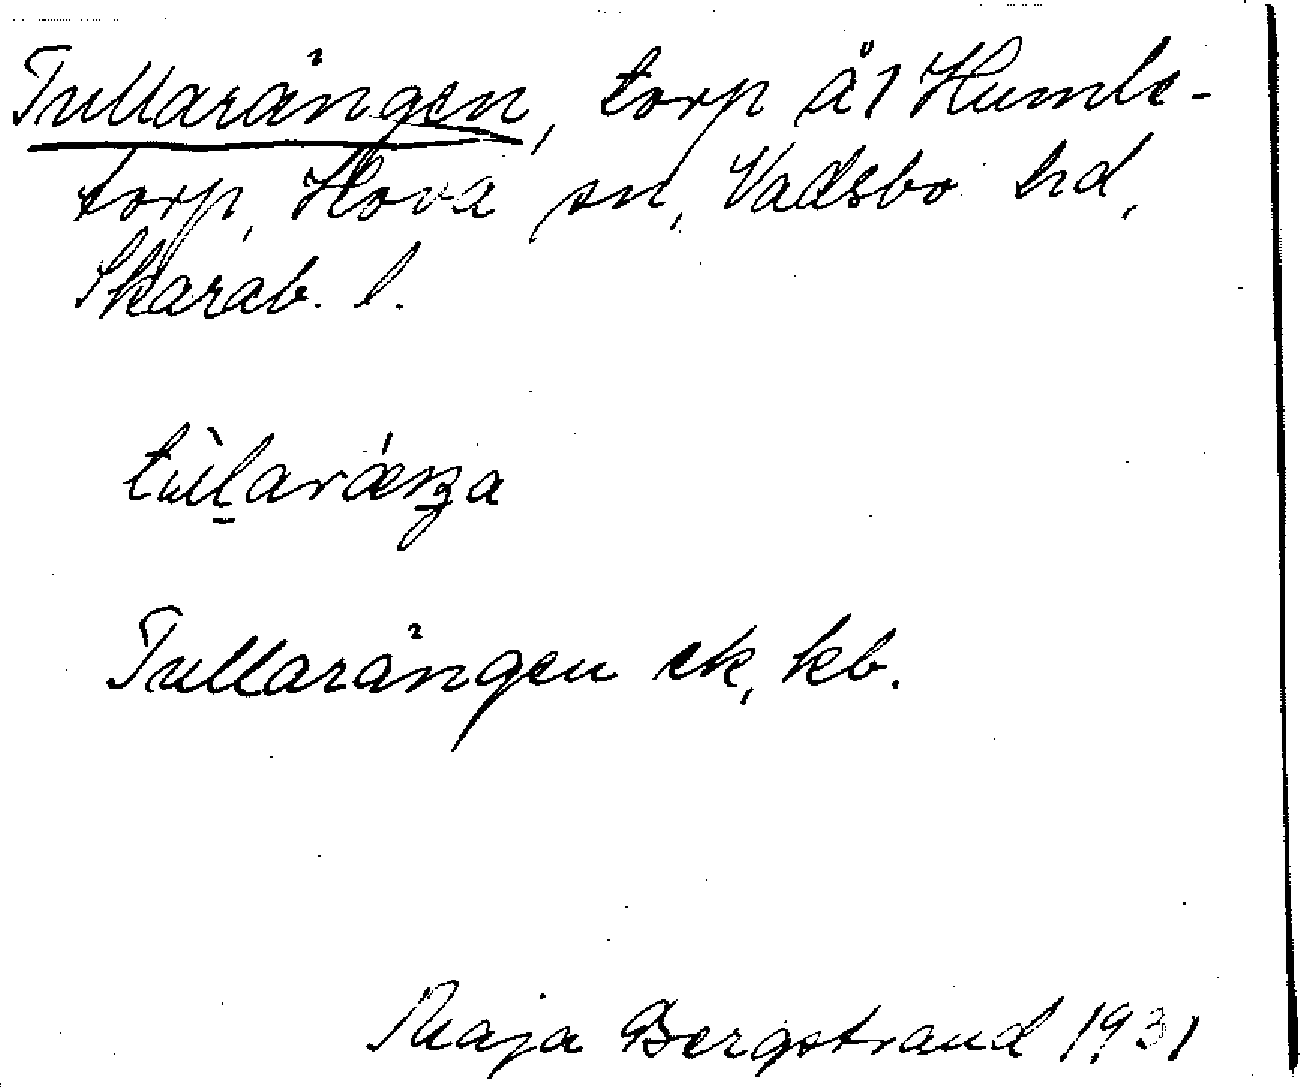 Tullarängen, torp å1 Humle-
torp, Hova sn, Vadsbo hd,
Skarab. l.
tùl̠ará̈ŋa
Tullarängen ek, kb.
Maja Bergstrand 1931